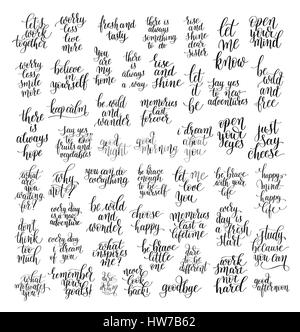 let's
work
together
worry
less
live
more
fresh and
tasty
there is
always
something
to do
rise
and
shine
dear
sister
let
me
know
open
your
mind
worry
less
smile
more
believe
in
yourself
you
are
my
home
there
is
always
a way
rise
and
shine
let
it
be
be wild
and
free
keep calm
say yes
to new
adventures
there
is
always
hope
say yes
to
fruits and
vegetables
be wild
and
wander
memories
last
forever
i dream
about
you
open
your
eyes
just
say
cheese
good
night
good
morning
what
are
you
waiting
for?
why
not?
you can do
everything
be brave
enough
to be
yourself
let
me
love
you
be
happy
with
life
happy
mind
happy
life
every day
is a new
adventure
be wild
and
wander
choose
happy
memories
last a
lifetime
every
day is
a fresh
start
don't
think
too
much
every day
i dream
of you
what
inspires
me?
be brave
little
one
dare
to be
different
work
smart
not
hard
study
because
you can
what
motivates
you?
remember
your
goals!
never
look
back!
goodbye
alamy
Image ID: HW7B62
www.alamy.com